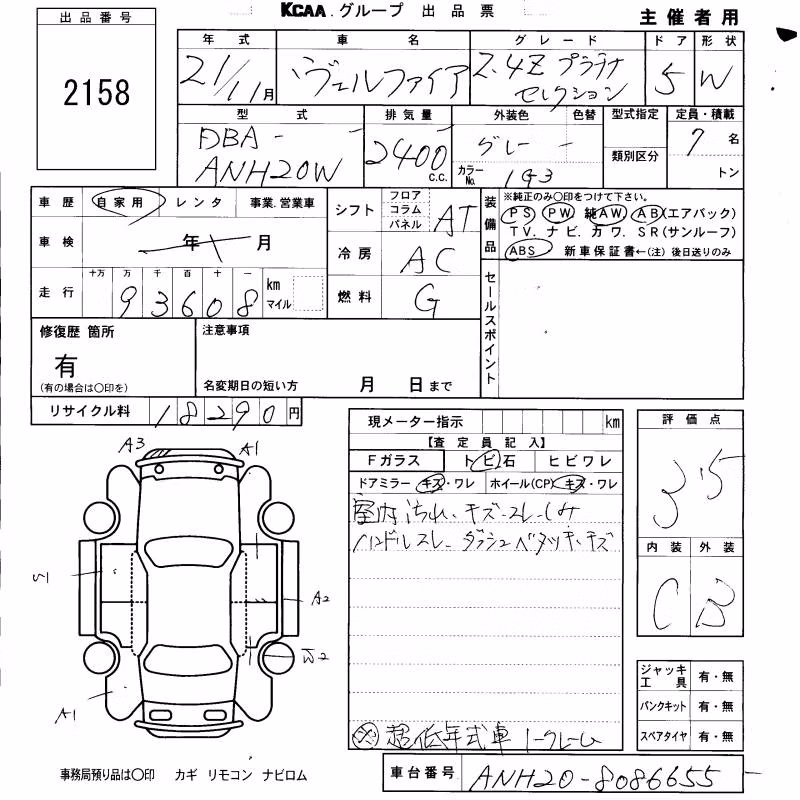 KCAA.グループ 出品票
主催者用
出品番号
2158
年式 車名 グレード ドア 形状
21/11月 ヴェルファイア 2.4Z プラチナ セレクション 5 W
型式 排気量 外装色 色替 型式指定 定員・積載
DBA- ANH20W 2400 c.c. グレー - 類別区分 7名
カラーNo. 193 トン
車歴 自家用 レンタ 事業.営業車
車検 年 月
走行 十万 万 千 百 十 一
93608 km マイル
シフト フロア コラム パネル AT
冷房 AC
燃料 G
装備品
※純正のみ〇印をつけて下さい。
PS PW 純AW AB(エアバック)
TV. ナビ. カワ. SR(サンルーフ)
ABS 新車保証書←(注)後日送りのみ
セールスポイント
修復歴 箇所
有
(有の場合は〇印を)
注意事項
名変期日の短い方 月 日まで
リサイクル料 18290円
現メーター指示 km
【査定員記入】
Fガラス トビ石 ヒビワレ
ドアミラー キズ・ワレ ホイール(CP) キズ・ワレ
室内汚れ、キズ-スレ-シミ
ハンドルスレ- ダッシュベタツキ、キズ
超低年式車 1-クレーム
評価点
3.5
内装 外装
C B
A3 A1
S1
A2
W2
A1
ジャッキ 工具 有・無
パンクキット 有・無
スペアタイヤ 有・無
事務局預り品は〇印 カギ リモコン ナビロム
車台番号 ANH20-8086655